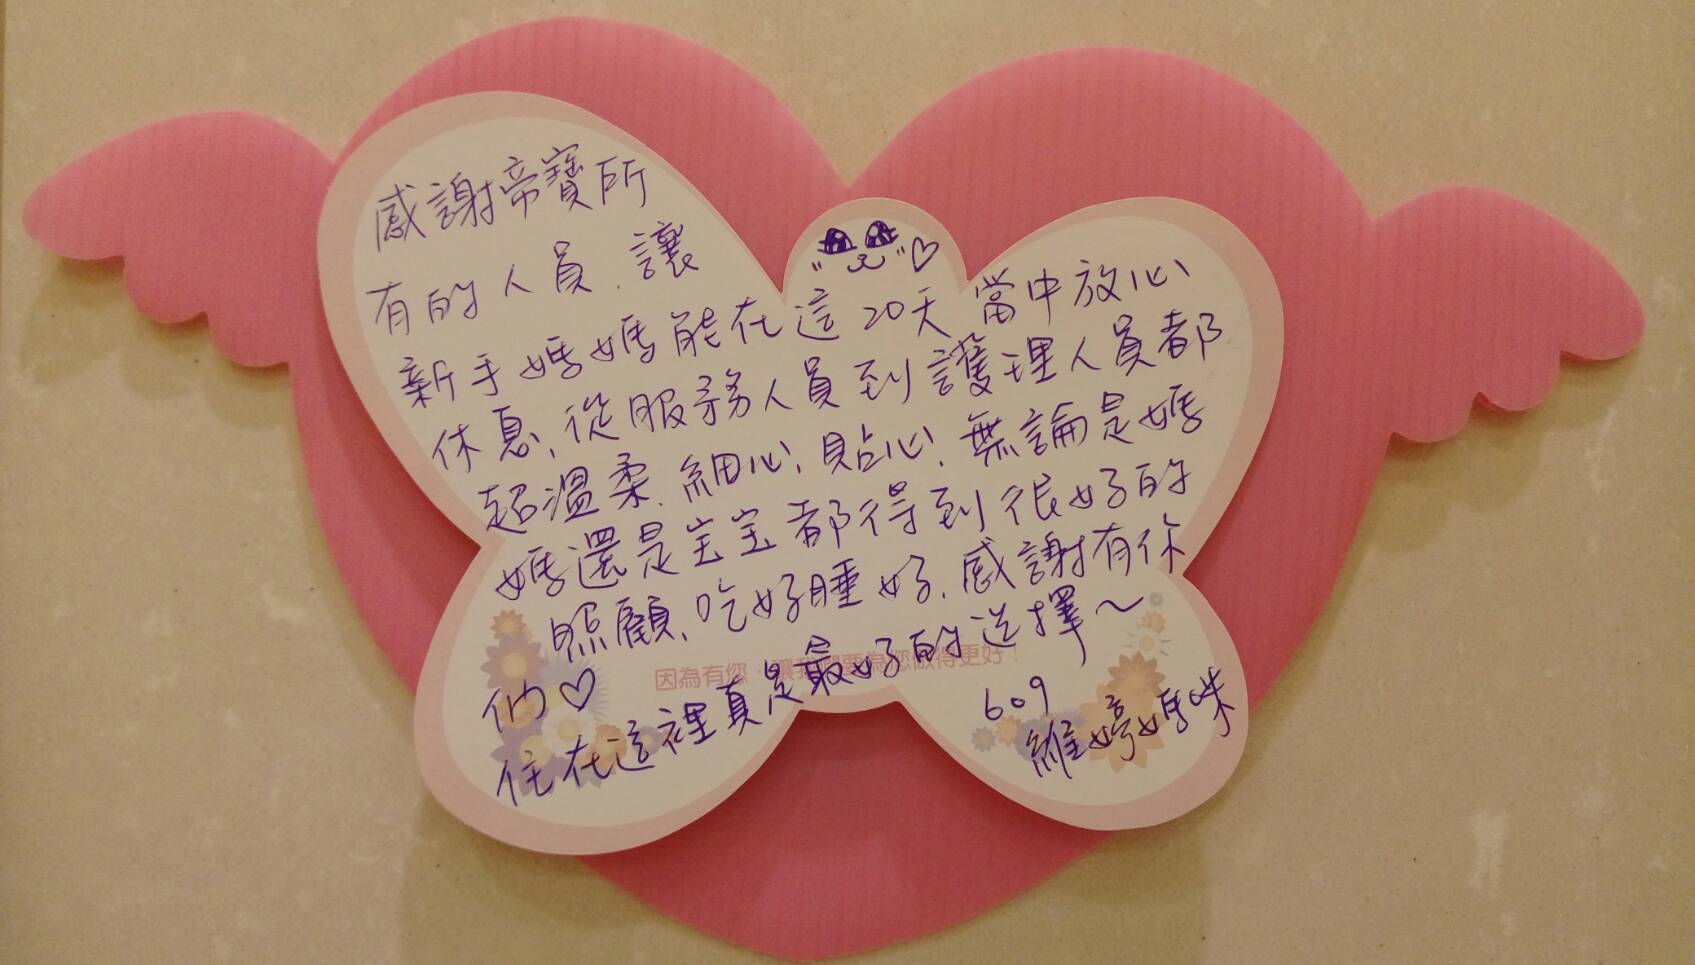 感謝帝寶所
有的人員、讓
新手媽媽能在這20天當中放心
休息、從服務人員到護理人員都
超溫柔、細心、貼心、無論是媽
媽還是宝宝都得到很好的
照顧、吃好睡好、感謝有你
們♡
因為有您，讓我們要為您做得更好！
住在這裡真是最好的选擇～
609
維婷媽咪